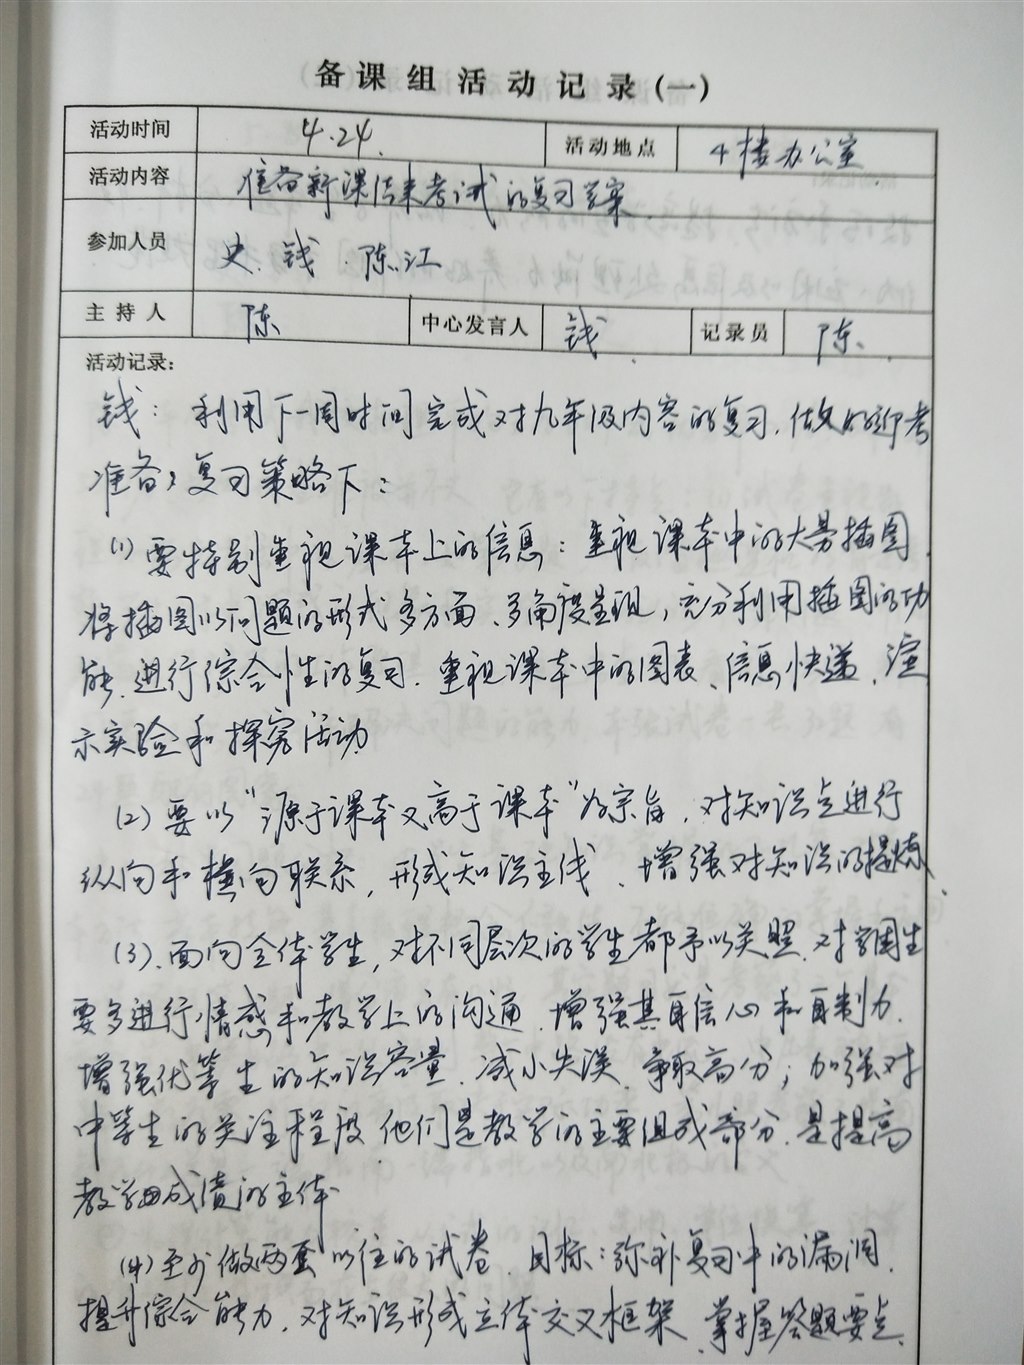 备课组活动记录(一)
活动时间 4.24. 活动地点 4楼办公室
活动内容 准备新课结束考试的复习方案
参加人员 史、钱、陈、江
主持人 陈 中心发言人 钱 记录员 陈
活动记录:
钱: 利用下一周时间完成对九年级内容的复习,做好迎考
准备,复习策略下:
(1)要特别重视课本上的信息:重视课本中的大旁插图,
将插图以问题的形式多方面、多角度呈现,充分利用插图的功
能,进行综合性的复习.重视课本中的图表、信息快递、演
示实验和探究活动
(2)要以"源于课本又高于课本"为宗旨,对知识点进行
纵向和横向联系,形成知识主线、增强对知识的提炼、
(3)、面向全体学生,对不同层次的学生都予以关照,对学困生
要多进行情感和教学上的沟通,增强其自信心和自制力.
增强优等生的知识容量、减小失误、争取高分;加强对
中等生的关注程度,他们是教学的主要组成部分,是提高
教学成绩的主体
(4)至少做两套以往的试卷,目标:弥补复习中的漏洞,
提升综合能力,对知识形成立体交叉框架、掌握答题要点.